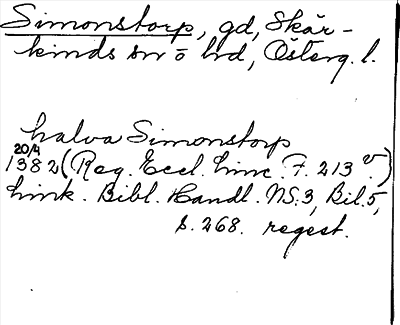 Simonstorp, gd, Skär-
kinds sn o hd, Österg. l.
halva Simonstorp
20/4
1382 (Reg. Eccl. Linc. F. 213 v.)
Link. Bibl. Handl. NS. 3, Bil. 5,
s. 268. regest.